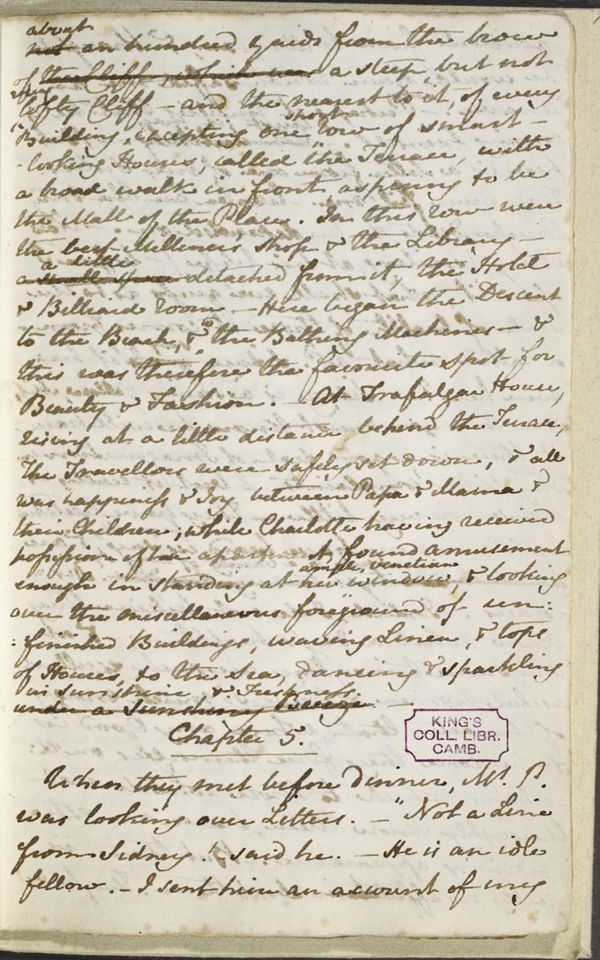 about
not an hundred yards from the brow
of the Cliff, which was a steep, but not
very
lofty Cliff – and the nearest to it, of every
short
Building, excepting one row of smart-
-looking Houses, called the Terrace, with
a broad walk in front, aspiring to be
the Mall of the Place. In this row were
the best Milliner's shop & the Library –
a little
a detached from it, the Hotel
& Billiard room – Here began the Descent
to the Beach, & to the Bathing Machines – &
this was therefore the favourite spot for
Beauty & Fashion. – At Trafalgar House,
rising at a little distance behind the Terrace,
The Travellors were safely set down, & all
was happiness & Joy between Papa & Mama &
their Children; while Charlotte having received
possession of her apartment, found amusement
ample, venetian
enough in standing at her window, & looking
over the miscellaneous foreground of un:
:finished Buildings, waving Linen, & tops
of Houses, to the Sea, dancing & sparkling
in Sunshine & Freshness. –
under a Sunshiny Breeze
Chapter 5.
KING'S
COLL. LIBR.
CAMB.
When they met before dinner, Mr. P.
was looking over Letters. – "Not a Line
from Sidney! said he. – He is an idle
fellow. – I sent him an account of my